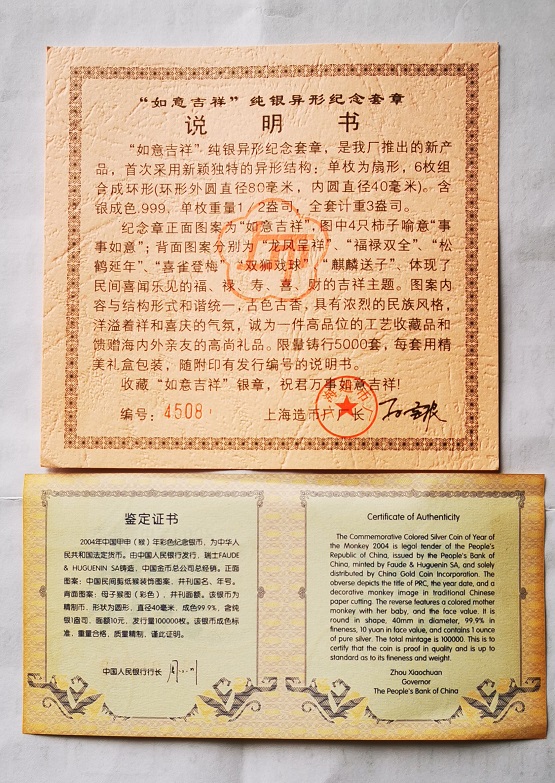 “如意吉祥”纯银异形纪念套章
说 明 书
“如意吉祥”纯银异形纪念套章，是我厂推出的新产
品，首次采用新颖独特的异形结构：单枚为扇形，6枚组
合成环形(环形外圆直径80毫米，内圆直径40毫米)。含
银成色.999，单枚重量1／2盎司，全套计重3盎司。
纪念章正面图案为“如意吉祥”，图中4只柿子喻意“事
事如意”；背面图案分别为“龙凤呈祥”、“福禄双全”、“松
鹤延年”、“喜雀登梅”、“双狮戏球”、“麒麟送子”、体现了
民间喜闻乐见的福、禄、寿、喜、财的吉祥主题。图案内
容与结构形式和谐统一，古色古香，具有浓烈的民族风格，
洋溢着祥和喜庆的气氛，诚为一件高品位的工艺收藏品和
馈赠海内外亲友的高尚礼品。限量铸行5000套，每套用精
美礼盒包装，随附印有发行编号的说明书。
收藏“如意吉祥”银章，祝君万事如意吉祥!
编号：4508 上海造币厂厂长
鉴定证书
2004年中国甲申（猴）年彩色纪念银币，为中华人
民共和国法定货币。由中国人民银行发行，瑞士FAUDE
& HUGUENIN SA铸造，中国金币总公司总经销。正面
图案：中国民间剪纸猴装饰图案，并刊国名、年号。
背面图案：母子猴图（彩色），并刊面额。该银币为
精制币，形状为圆形，直径40毫米，成色99.9%，含纯
银1盎司，面额10元，发行量100000枚。该银币成色标
准，重量合格，质量精制，谨此证明。
中国人民银行行长
Certificate of Authenticity
The Commemorative Colored Silver Coin of Year of
the Monkey 2004 is legal tender of the People's
Republic of China, issued by the People's Bank of
China, minted by Faude & Huguenin SA, and solely
distributed by China Gold Coin Incorporation. The
obverse depicts the title of PRC, the year date, and a
decorative monkey image in traditional Chinese
paper cutting. The reverse features a colored mother
monkey with her baby, and the face value. It is
round in shape, 40mm in diameter, 99.9% in
fineness, 10 yuan in face value, and contains 1 ounce
of pure silver. The total mintage is 100000. This is to
certify that the coin is proof in quality and is up to
standard as to its fineness and weight.
Zhou Xiaochuan
Governor
The People's Bank of China